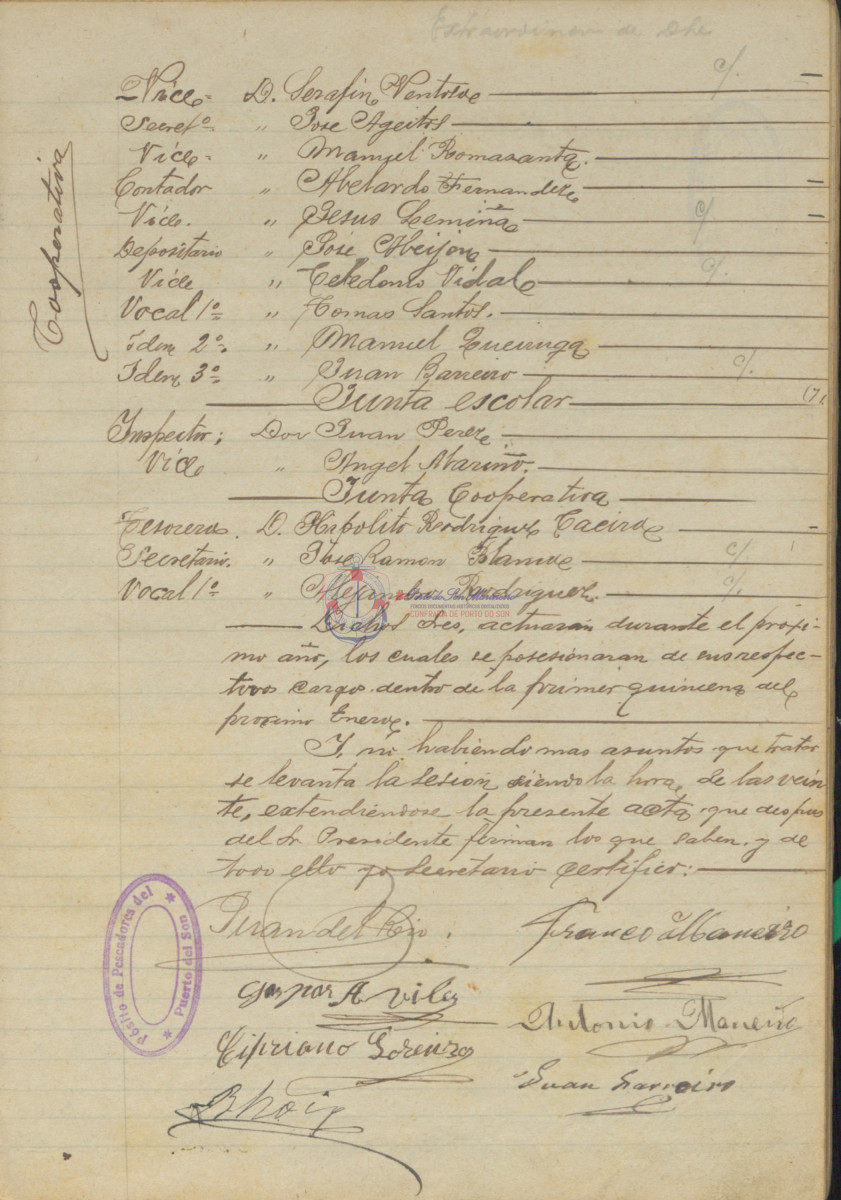 Extraordinaria de
Cooperativa
Vice= D. Serafin Ventoso c/.
Secretº= " Jose Ageitos
Vice= " Manuel Romasanta.
Contador " Abelardo Fernandez
Vice. " Jesus Lemiña c/
Depositario " José Abeijon
Vice " Celedonio Vidal c/.
Vocal 1º= " Tomas Santos.
Idem 2º= " Manuel Queiruga
Idem 3º= " Juan Barreiro c/.
Junta escolar
Inspector; Don Juan Perez
Vice " Angel Mariño.
Junta Cooperativa
Tesorero. D. Hipolito Rodriguez Caeiro
Secretario. " Jose Ramon Blanco c/
Vocal 1º= " Alejandro Rodriguez. c/.
CONFRARÍA DE PORTO DO SON
Dichos tres, actuaran durante el proxi-
mo año, los cuales se posesionaran de sus respec-
tivos cargos dentro de la primer quincena del
proximo Enero.
Y no habiendo mas asuntos que tratar
se levanta la sesion siendo la hora, de las vein
te, extendiendose la presente acta que despues
del Sr. Presidente firman los que saben, y de
todo ello yo Secretario certifico:
Pósito de Pescadores del Puerto del Son
Juan del Rio.
Gaspar Aviles
Antonio Maneiro
Cipriano Lorenzo
Juan Barreiro